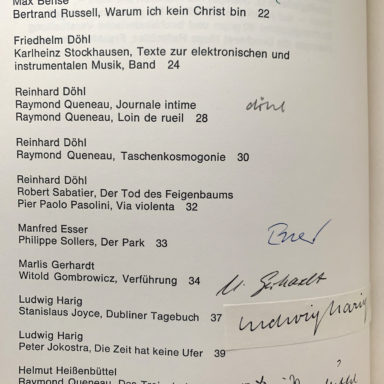 Max Bense
Bertrand Russell, Warum ich kein Christ bin 22
Friedhelm Döhl
Karlheinz Stockhausen, Texte zur elektronischen und
instrumentalen Musik, Band 24
Reinhard Döhl
Raymond Queneau, Journale intime
Raymond Queneau, Loin de rueil 28
döhl
Reinhard Döhl
Raymond Queneau, Taschenkosmogonie 30
Reinhard Döhl
Robert Sabatier, Der Tod des Feigenbaums
Pier Paolo Pasolini, Via violenta 32
Manfred Esser
Philippe Sollers, Der Park 33
Marlis Gerhardt
Witold Gombrowicz, Verführung 34
M. Gerhardt
Ludwig Harig
Stanislaus Joyce, Dubliner Tagebuch 37
ludwig harig
Ludwig Harig
Peter Jokostra, Die Zeit hat keine Ufer 39
Helmut Heißenbüttel
Raymond Queneau,